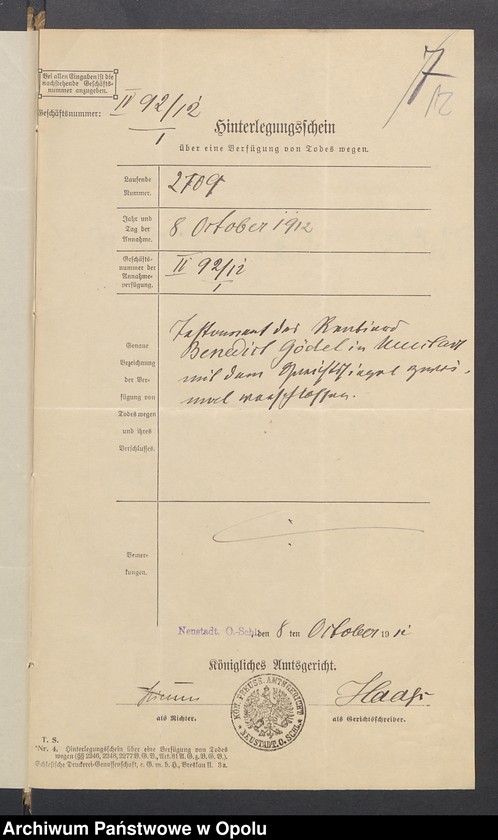 7
12
Bei allen Eingaben ist die
nachstehende Geschäfts-
nummer anzugeben.
Geschäftsnummer: II 92/12
1
Hinterlegungsschein
über eine Verfügung von Todes wegen.
Laufende
Nummer.
2709
Jahr und
Tag der
Annahme.
8 October 1912
Geschäfts-
nummer der
Annahme-
verfügung.
II 92/12
1
Genaue
Bezeichnung
der Ver-
fügung von
Todes wegen
und ihres
Verschlusses.
Testament des Rentiers
Benedict Gödel in
mit dem Gerichtssiegel zwei-
mal verschlossen.
Bemer-
kungen.
Neustadt. O.-Schl., den 8 ten October 1912
Königliches Amtsgericht.
als Richter.
Haage
als Gerichtsschreiber.
KÖN. PREUSS. AMTSGERICHT
NEUSTADT. O. SCHL.
T. S.
*Nr. 4. Hinterlegungsschein über eine Verfügung von Todes
wegen (§§ 2246, 2248, 2277 B. G. B., Art. 81 A. G. z. B. G. B.).
Schlesische Druckerei-Genossenschaft, e. G. m. b. H., Breslau II. 3a.
Archiwum Państwowe w Opolu